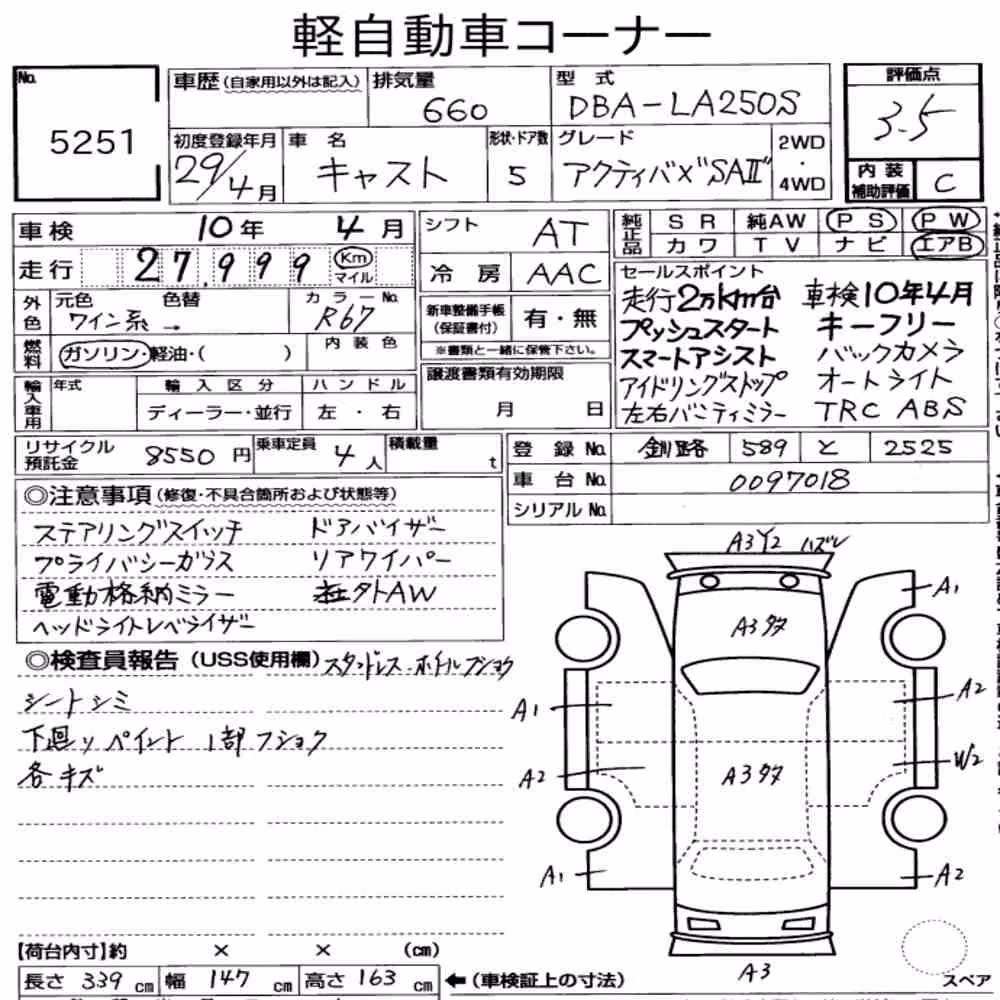 軽自動車コーナー
No.
5251
車歴(自家用以外は記入)
排気量
660
型 式
DBA-LA250S
評価点
3.5
初度登録年月
29/4月
車 名
キャスト
形状・ドア数
5
グレード
アクティバX"SAⅡ"
2WD
・
4WD
内 装
補助評価
C
車検
10年 4月
走行
27,999
Km
マイル
シフト
AT
冷 房
AAC
純正品
SR 純AW PS PW
カワ TV ナビ エアB
外色
元色 色替
ワイン系 →
カラーNo.
R67
燃料
ガソリン・軽油・( )
内 装 色
新車整備手帳
(保証書付)
有・無
※書類と一緒に保管下さい。
セールスポイント
走行2万km台 車検10年4月
プッシュスタート キーフリー
スマートアシスト バックカメラ
アイドリングストップ オートライト
左右バニティミラー TRC ABS
輸入車用
年式
輸 入 区 分
ディーラー・並行
ハ ン ド ル
左 ・ 右
譲渡書類有効期限
月 日
リサイクル
預託金
8550 円
乗車定員
4人
積載量
t
登 録 No.
釧路 589 と 2525
車 台 No.
0097018
シリアル No.
◎注意事項(修復・不具合箇所および状態等)
ステアリングスイッチ ドアバイザー
プライバシーガラス リアワイパー
電動格納ミラー 社外AW
ヘッドライトレベライザー
◎検査員報告(USS使用欄)
シートシミ
下廻りペイント 1部フショク
各キズ
A3Y2 ハズレ
A1
A3タタ
A1
A2
A2
W2
A3タタ
A1
A2
A3
スペア
【荷台内寸】約 × × (cm)
長さ 339 cm 幅 147 cm 高さ 163 cm ←(車検証上の寸法)